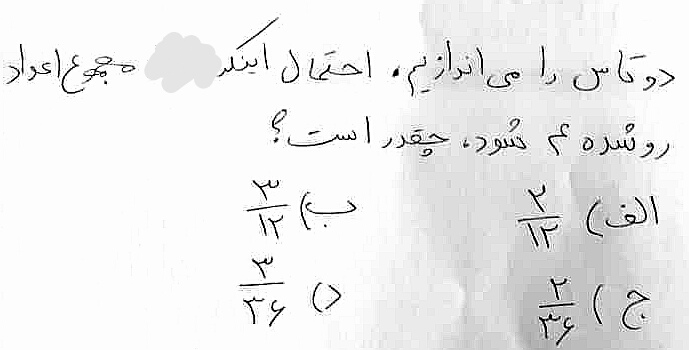 دو تاس را می‌اندازیم، احتمال اینکه مجموع اعداد
رو شده ۴ شود، چقدر است؟
الف) ۲/۱۲ ب) ۳/۱۲
ج) ۲/۳۶ د) ۳/۳۶